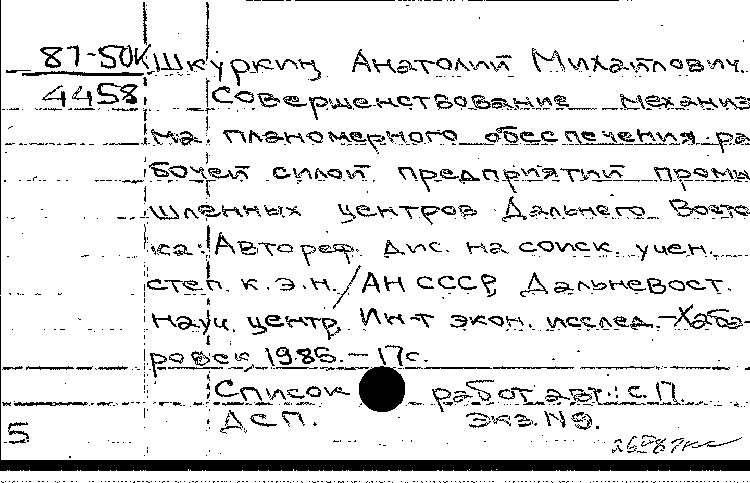 87-50К Шкуркин Анатолий Михайлович.
4458 Совершенствование механиз
ма планомерного обеспечения ра
бочей силой предприятий промы
шленных центров Дальнего Восто
ка: Автореф. дис. на соиск. учен.
степ. к.э.н./АН СССР, Дальневост.
науч. центр, Ин-т экон. исслед.-Хаба-
ровск, 1986.-17с.
Список работ авт.: с.17.
ДСП. Экз. №.
5